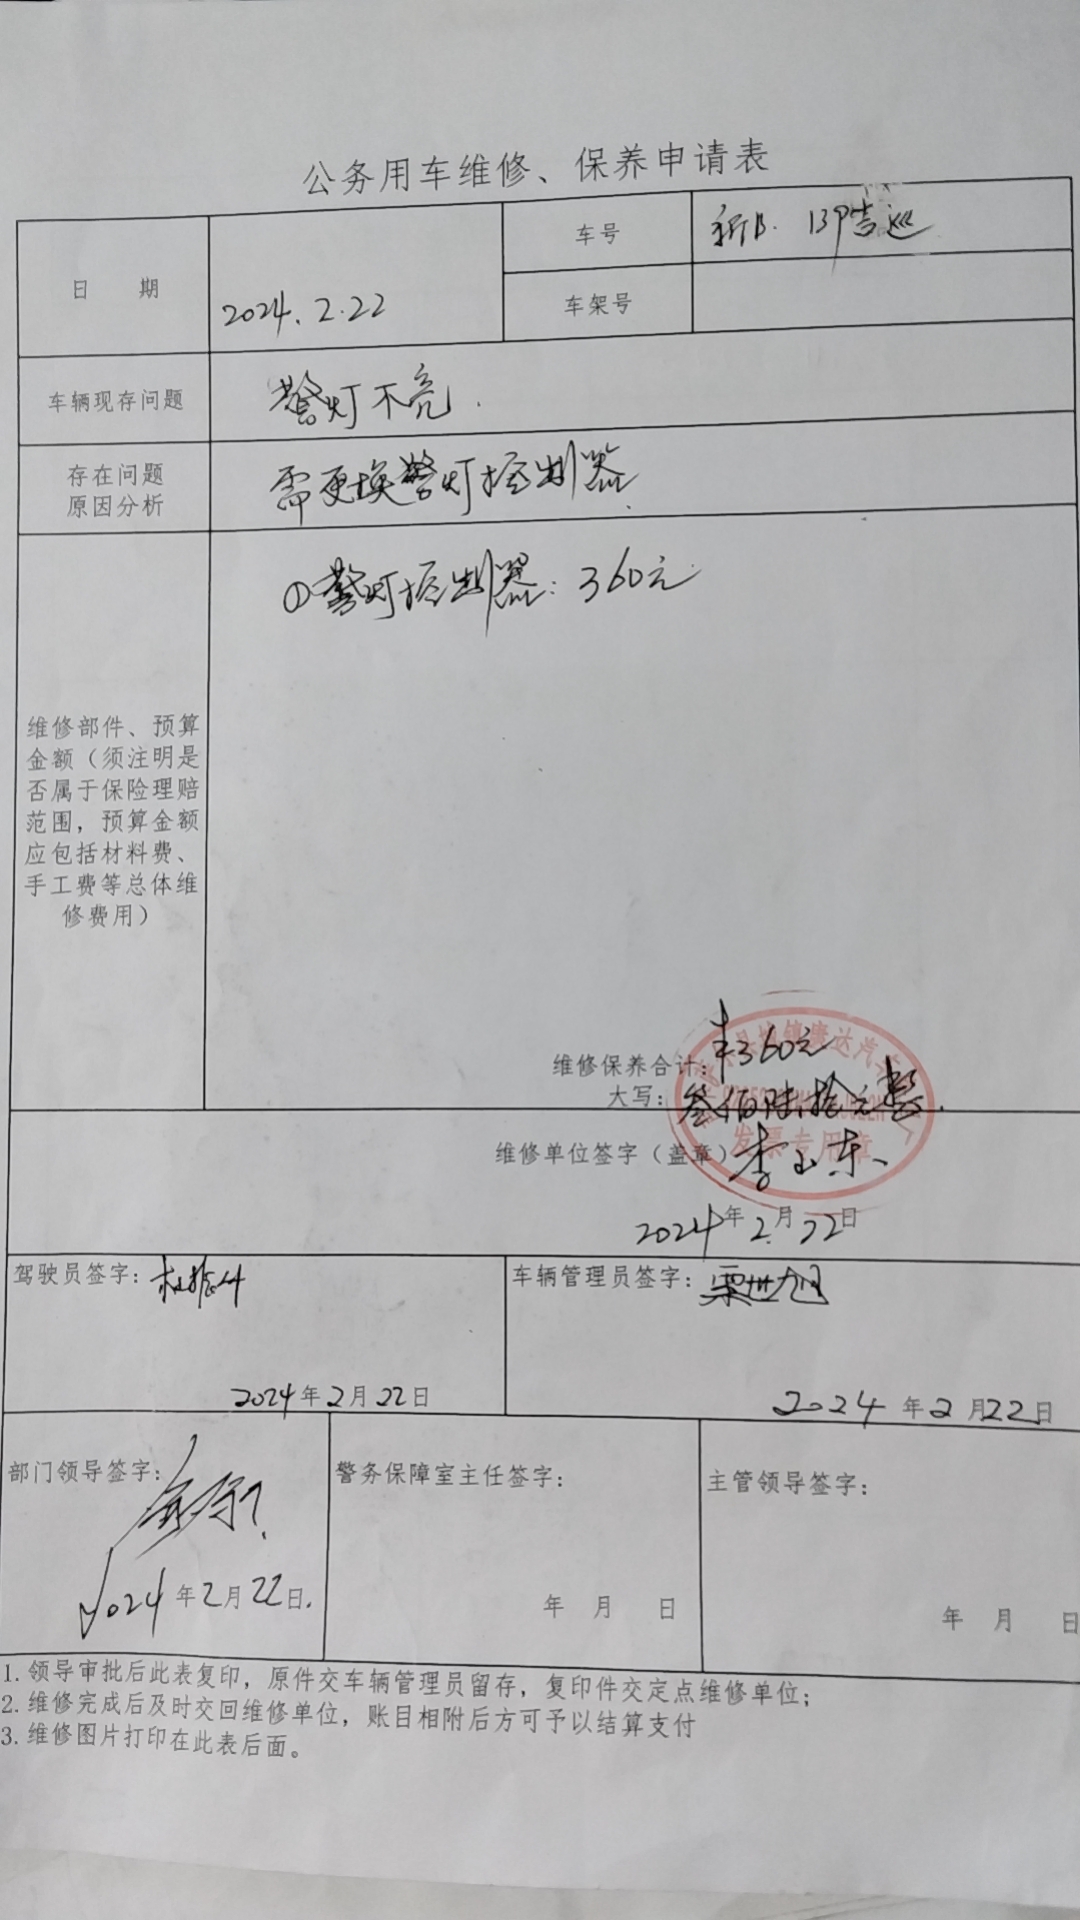 公务用车维修、保养申请表
日 期
2024.2.22
车号
新B.
车架号
车辆现存问题
警灯不亮.
存在问题
原因分析
需更换警灯控制器
维修部件、预算
金额（须注明是
否属于保险理赔
范围，预算金额
应包括材料费、
手工费等总体维
修费用）
①警灯控制器：360元
维修保养合计：360元
大写：叁佰陆拾元整.
发票专用章
维修单位签字（盖章）
2024年2月22日
驾驶员签字：
2024年2月22日
车辆管理员签字：栗世旭
2024年2月22日
部门领导签字：
2024年2月22日.
警务保障室主任签字：
年 月 日
主管领导签字：
年 月 日
1.领导审批后此表复印，原件交车辆管理员留存，复印件交定点维修单位；
2.维修完成后及时交回维修单位，账目相附后方可予以结算支付
3.维修图片打印在此表后面。